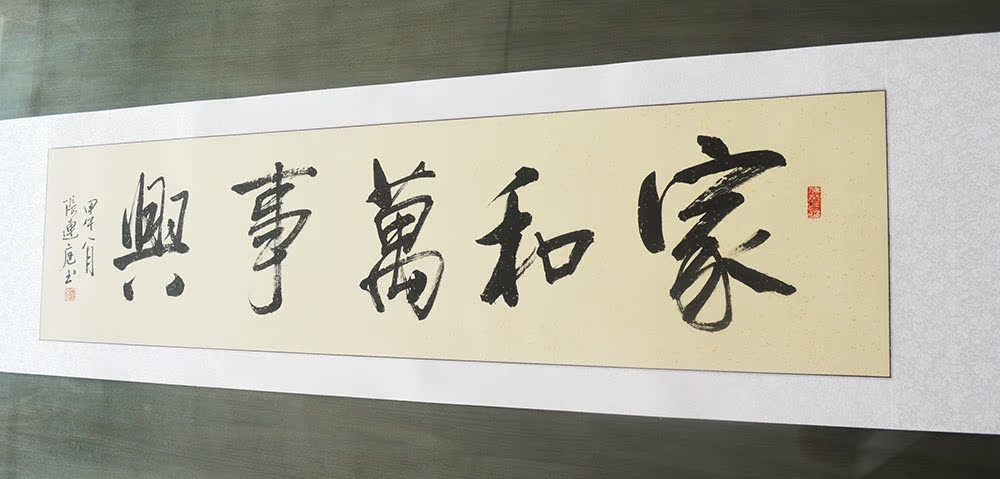 家和萬事興
甲午八月
張連庭书